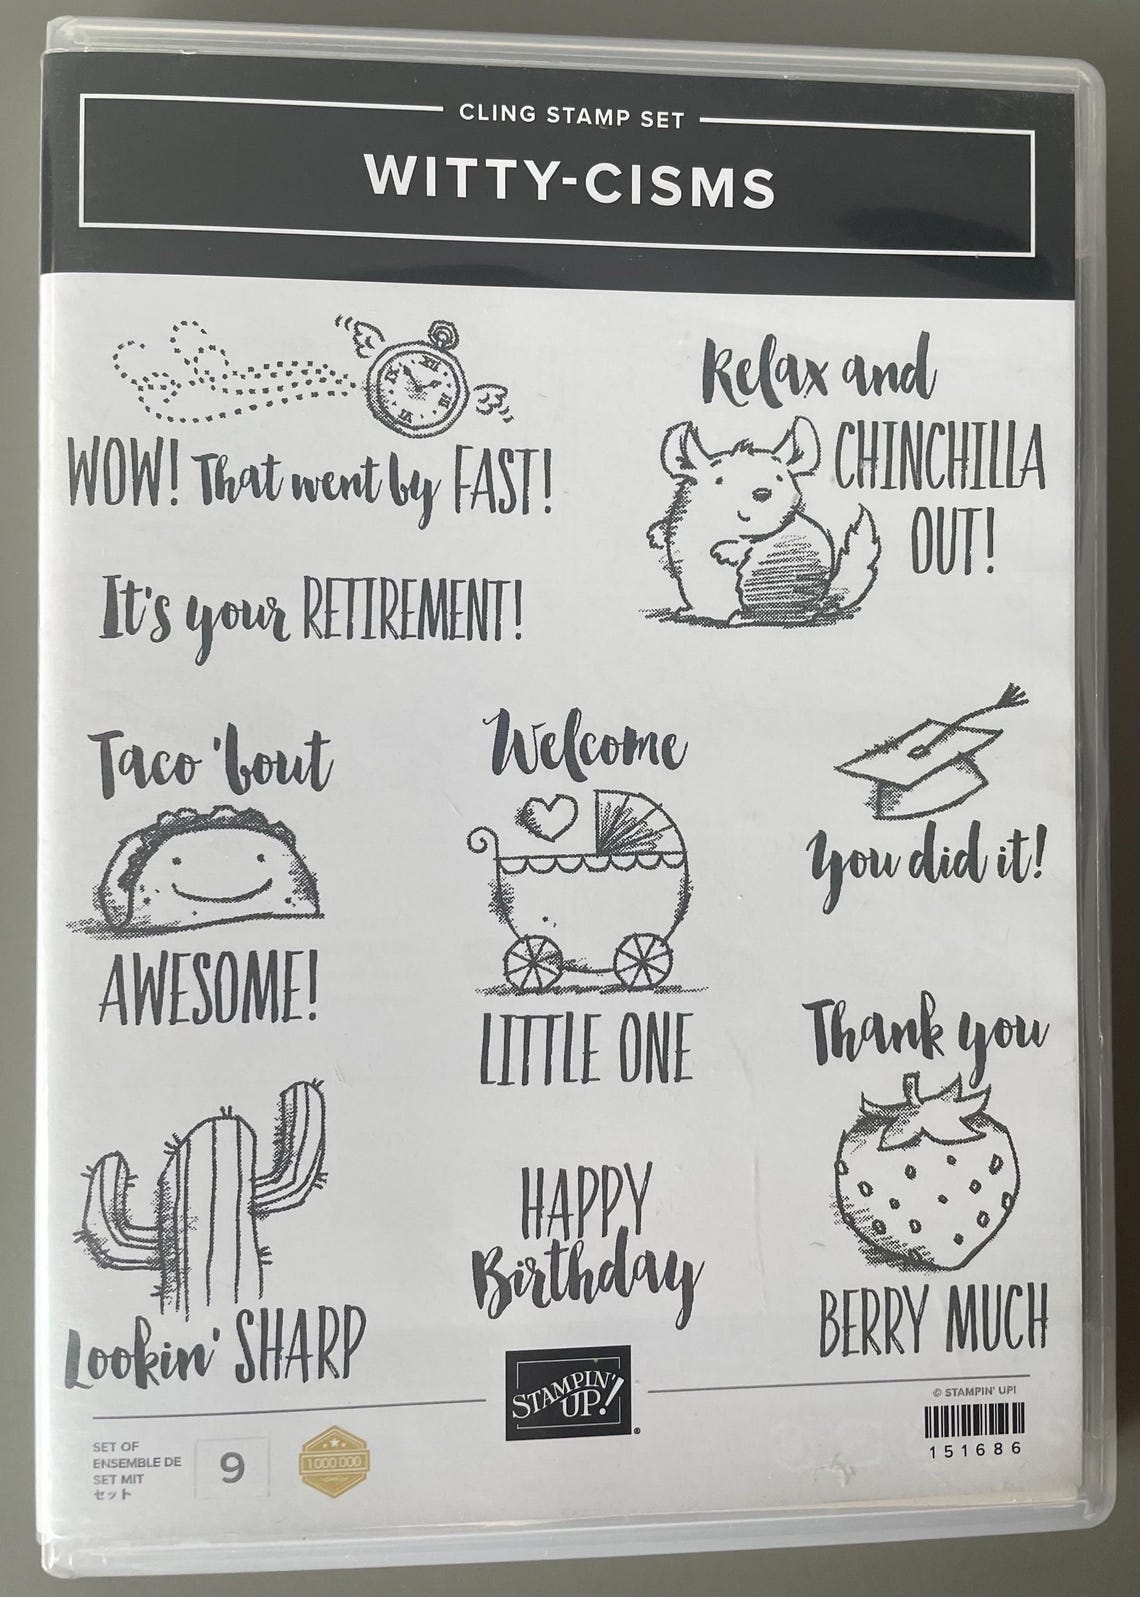 CLING STAMP SET
WITTY-CISMS
WOW! That went by FAST!
It's your RETIREMENT!
Relax and
CHINCHILLA
OUT!
Taco 'bout
AWESOME!
Welcome
LITTLE ONE
You did it!
Lookin' SHARP
HAPPY
Birthday
Thank you
BERRY MUCH
STAMPIN'
UP!®
SET OF
ENSEMBLE DE
SET MIT
セット
9
1 000 000
© STAMPIN' UP!
151686